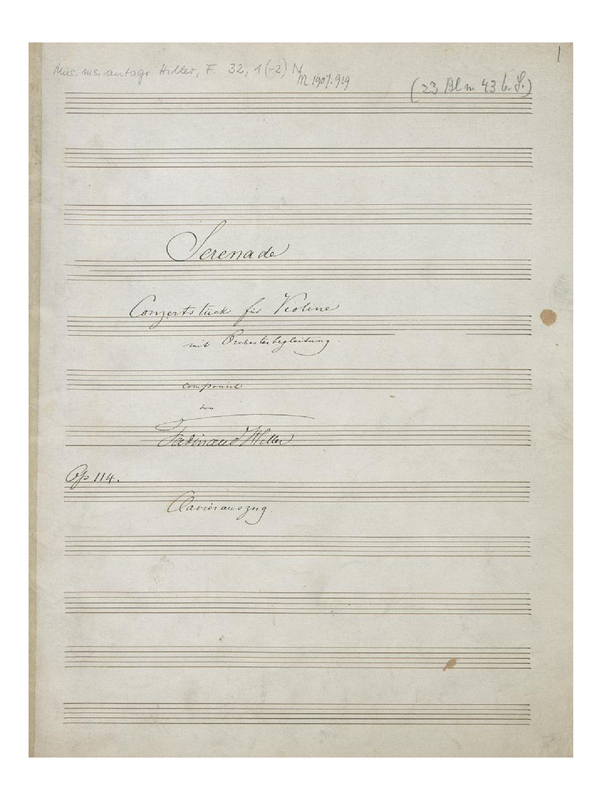 1
Mus. ms. autogr. Hiller, F. 32, 1 (-2) N
M 1907.929
(23 Bl m 43 b S.)
Serenade
Conzertstück für Violine
mit Orchesterbegleitung
componirt
von
Ferdinand Hiller
Op 114.
Clavierauszug